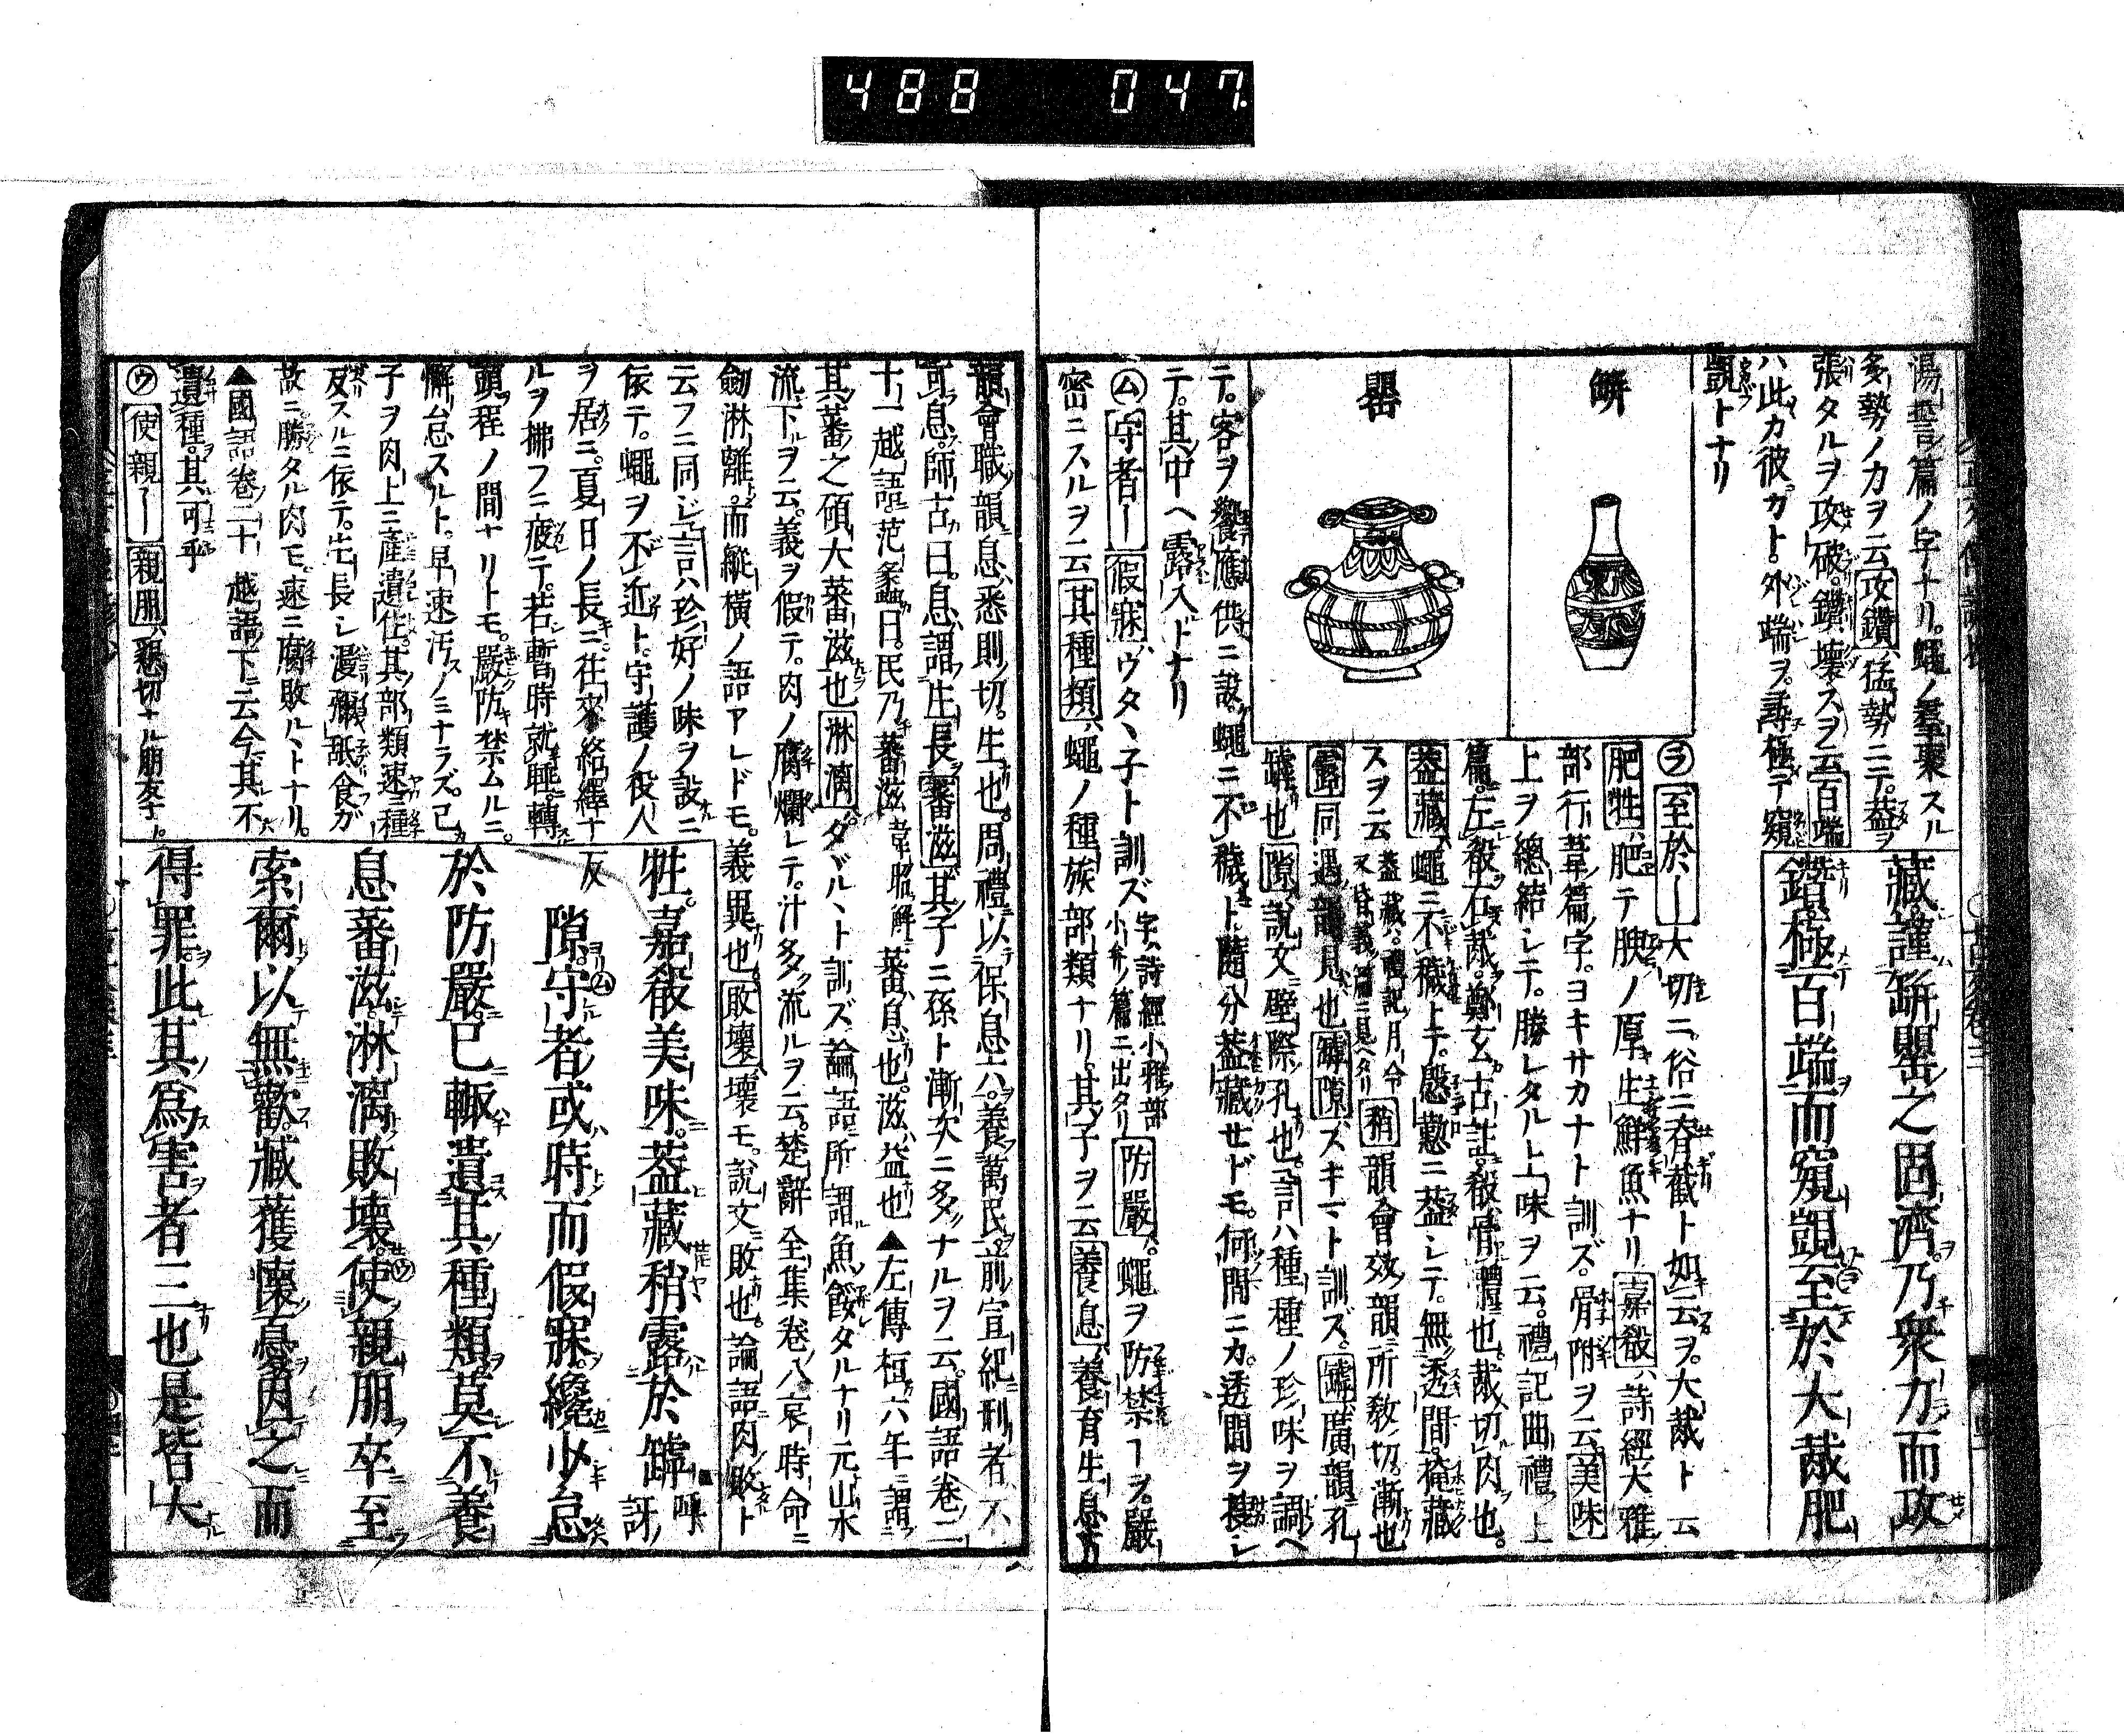 488 047
湯誓篇ノ字ナリ。蠅ノ羣聚スル
多勢ノカヲ云攻鑽ハ猛勢ニテ。葢ヲ
張タルヲ攻破。鑽壞スヲ云百端
ハ此カ彼ガト。外端ヲ尋極テ窺
覬トナリ
藏謹缾罌之固濟乃衆力而攻
鑽極百端而窺覬至於大胾肥
缾
罌
㋶至於〡大切ニ俗ニ春截ト如云ヲ。大胾ト云
肥牲ハ肥テ腴ノ厚キ生鮮魚ナリ嘉殽ハ詩經大雅
部行葦篇ノ字。ヨキサカナト訓ズ。骨附ヲ云美味
上ヲ總結シテ。勝レタル上味ヲ云。禮記曲禮上
篇。左殽右胾。鄭玄古註。殽骨體也。胾切肉也。
葢藏ハ蠅ニ不穢上ニテ。慇懃ニ葢シテ。無透間。掩藏
スヲ云葢藏ハ禮記月令稍韻會效韻所敎切。漸也
露同遇韻見也罅隙ハズキマト訓ズ。罅廣韻孔
罅也隙說文壁際孔也。言ハ種種ノ珍味ヲ調ヘ
テ。客ヲ饗應供ニ設。蠅ニ不穢ト。隨分葢藏セドモ。何間ニカ透間ヲ
テ。其中ヘ露入ドナリ
㋰守者〡假寐ハウタヽ子ト訓ズ字ハ詩經小雅部小弁ノ篇ニ出タリ防嚴ハ蠅ヲ防禁ーヲ。嚴
密ニスルヲ云其種類ハ蠅ノ種族部類ナリ。其子ヲ云養息ハ養育生息
韻會職韻息悉則切。生也。周禮以保息六養萬民。前宣紀刑者不
可息。師古曰。息謂生長蕃滋其子ニ孫ト漸次ニ多ナルヲ云。國語卷二
十一越語范蠡曰。民乃蕃滋韋昭解蕃息也。滋益也▲左傳桓六年謂
其蕃之碩大蕃滋也淋漓ハダヾルヽト訓ズ論語所謂魚餒タルナリ元山水
流下ルヲ云。義ヲ假テ。肉ノ腐爛レテ。汁多流ルヲ云。楚辭全集卷八哀時命ニ
劒淋離而縱橫ノ語アレドモ。義異也敗壞ハ壞モ。說文敗也。論語肉敗ト
云フニ同ジ言ハ珍好ノ味ヲ設ニ
依テ。蠅ヲ不近ト。守護ノ役人
ヲ居ニ。夏日ノ長ニ。往來絡繹ナ
ルヲ拂フニ疲テ。若暫時就睡轉
頭程ノ間ナリトモ。嚴防禁ムルニ。
懈怠スルト。早速汚ノミナラズ。己
子ヲ肉上ニ產遺住。其部類速ニ種
反スルニ依テ。生長シ漫爛舐食ガ
故ニ勝タル肉モ速ニ腐敗ルヽトナリ。
▲國語卷二十越語下云今其不
遺種。其可乎
㋒使親〡親朋ハ親切ナル朋友ナリ
牲嘉殽美味葢藏稍露於罅呼訝
反隙守者或時而假寐纔少怠
於防嚴已輒遺其種類莫不養
息蕃滋淋漓敗壞使親朋卒至
索爾以無歡臧獲懷憂因之而
得罪此其爲害者三也是皆大